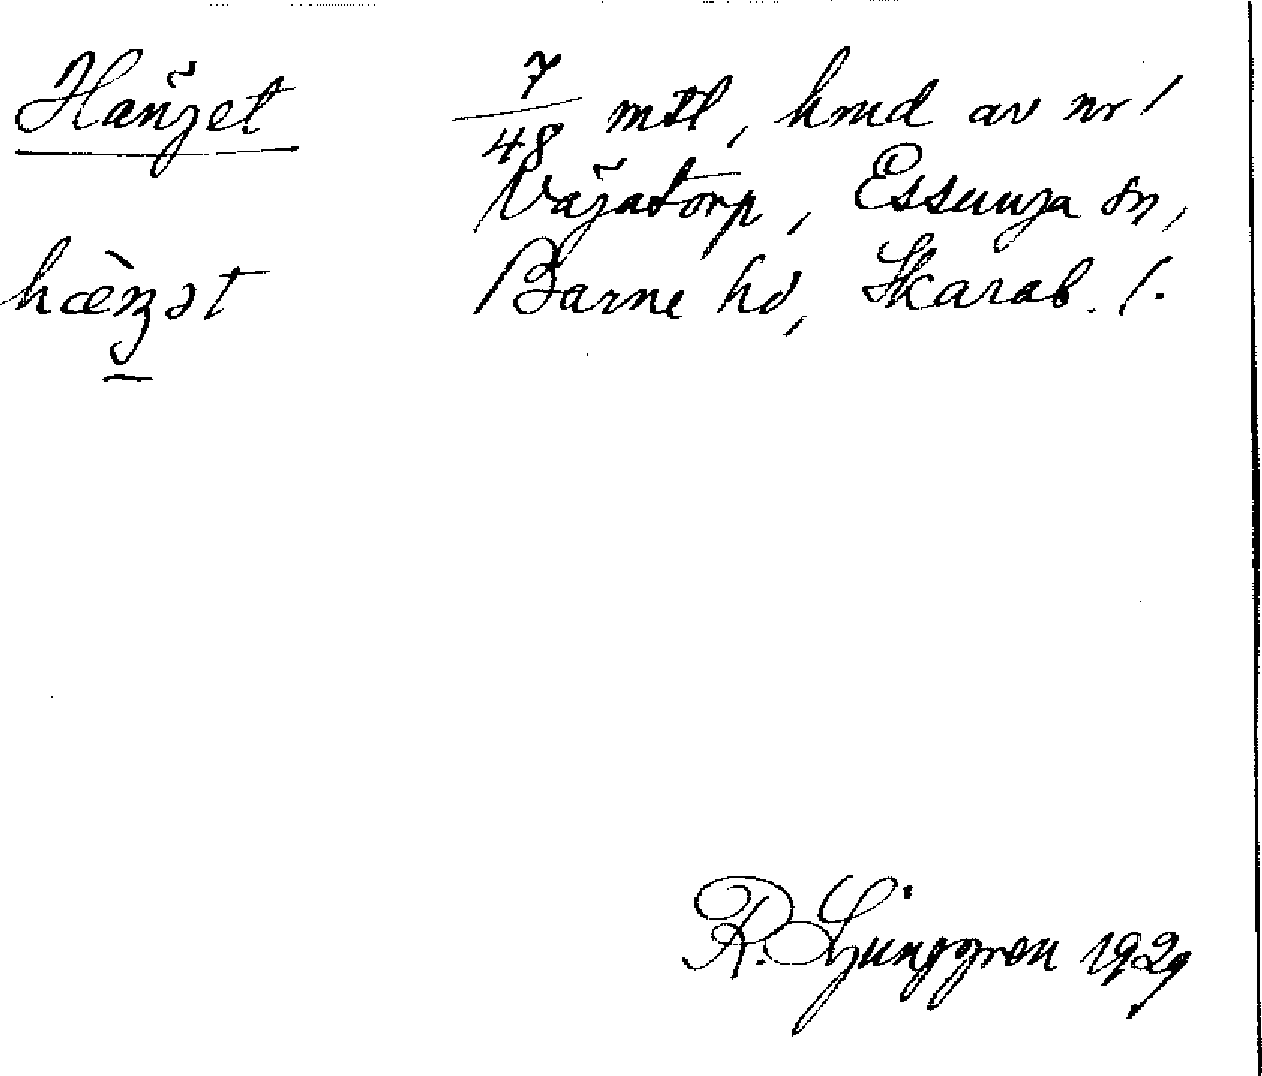 Hänget 7/48 mtl, hmd av nr 1
Väjatorp, Essunga sn,
hæ̀ŋət Barne hd, Skarab. l.
R. Ljunggren 1929